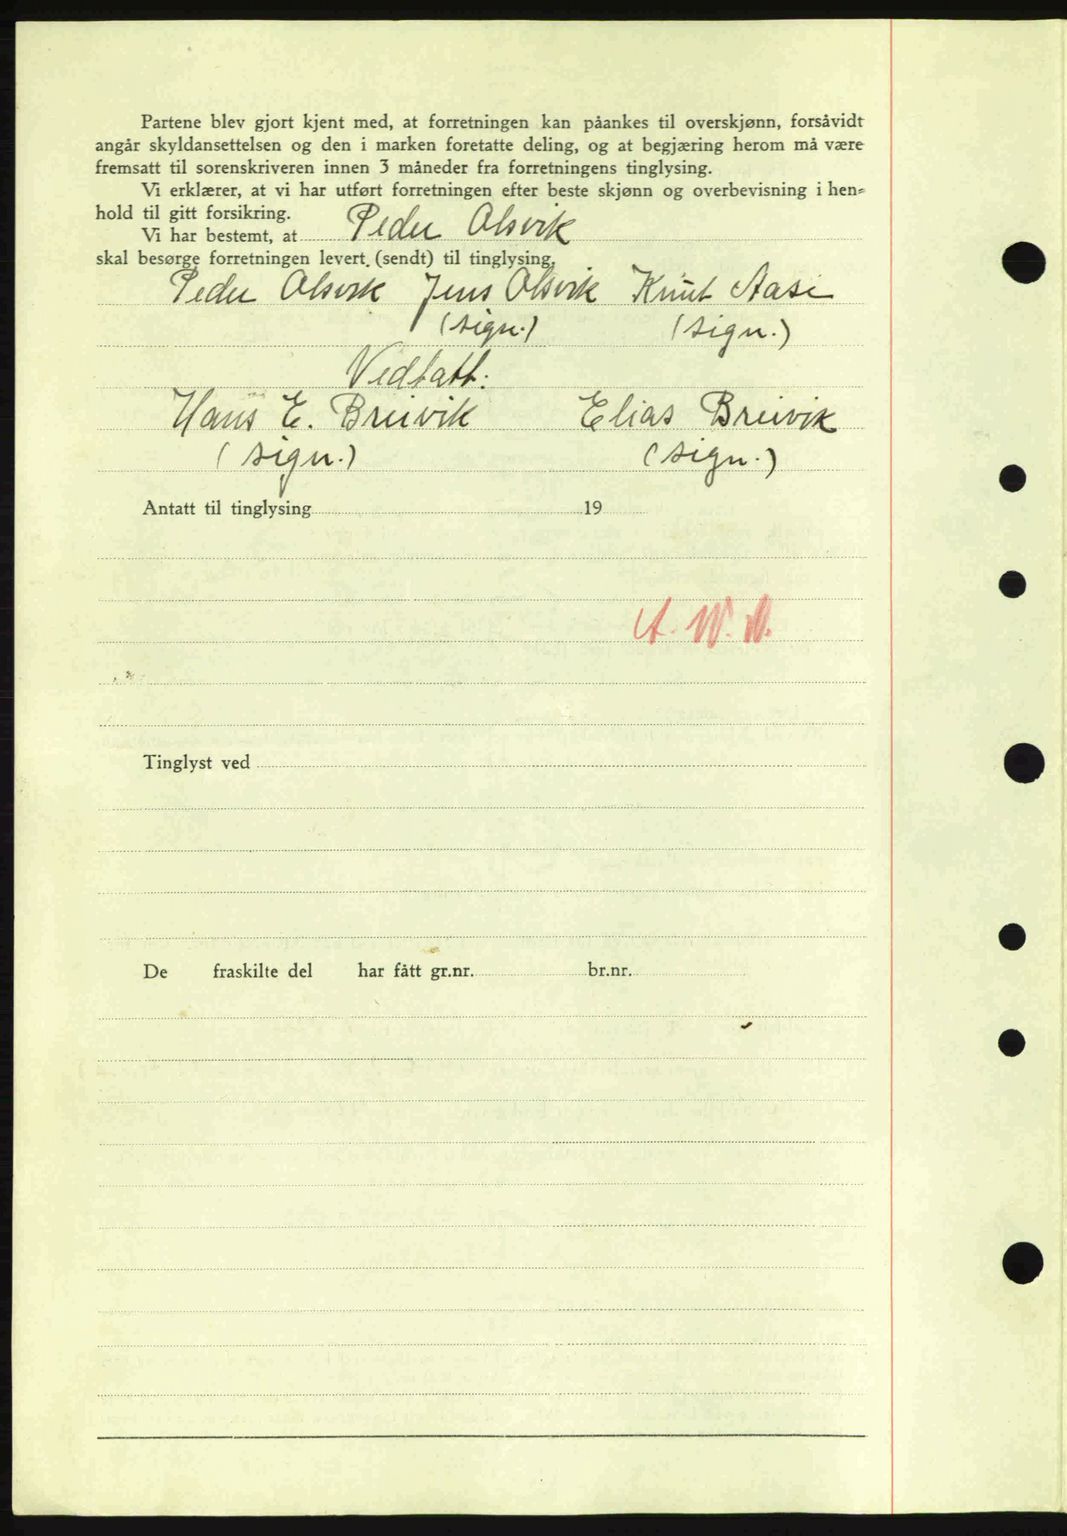 Partene blev gjort kjent med, at forretningen kan påankes til overskjønn, forsåvidt
angår skyldansettelsen og den i marken foretatte deling, og at begjæring herom må være
fremsatt til sorenskriveren innen 3 måneder fra forretningens tinglysing.
Vi erklærer, at vi har utført forretningen efter beste skjønn og overbevisning i hen-
hold til gitt forsikring.
Vi har bestemt, at Peder Alsvik
skal besørge forretningen levert (sendt) til tinglysing.
Peder Alsvik Jens Alsvik Knut Aase
(sign.) (sign.)
Vedtatt:
Hans E. Breivik Elias Breivik
(sign.) (sign.)
Antatt til tinglysing 19
A. W.
Tinglyst ved
De fraskilte del har fått gr.nr. br.nr.